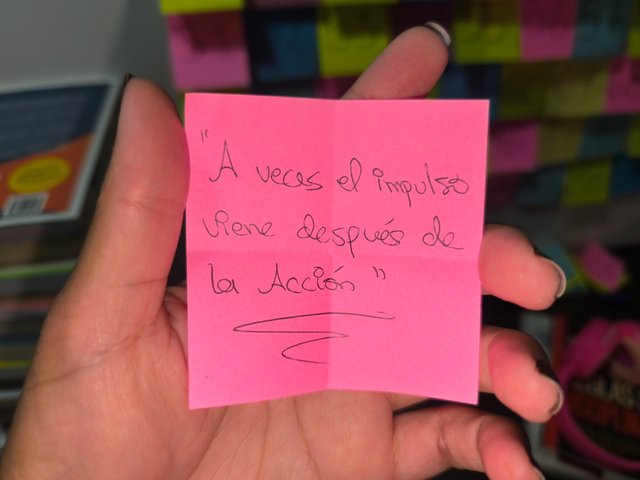 "A veces el impulso
viene después de
la Acción"